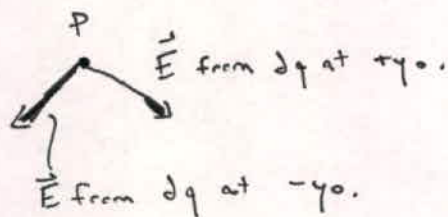 P
E⃗ from dq at +y₀.
E⃗ from dq at -y₀.